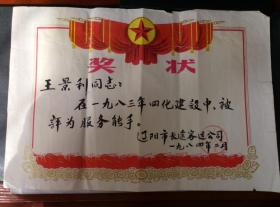 奖状
王景利同志：
在一九八三年四化建设中，被
评为服务能手。
辽阳市长途客运公司
一九八四年二月